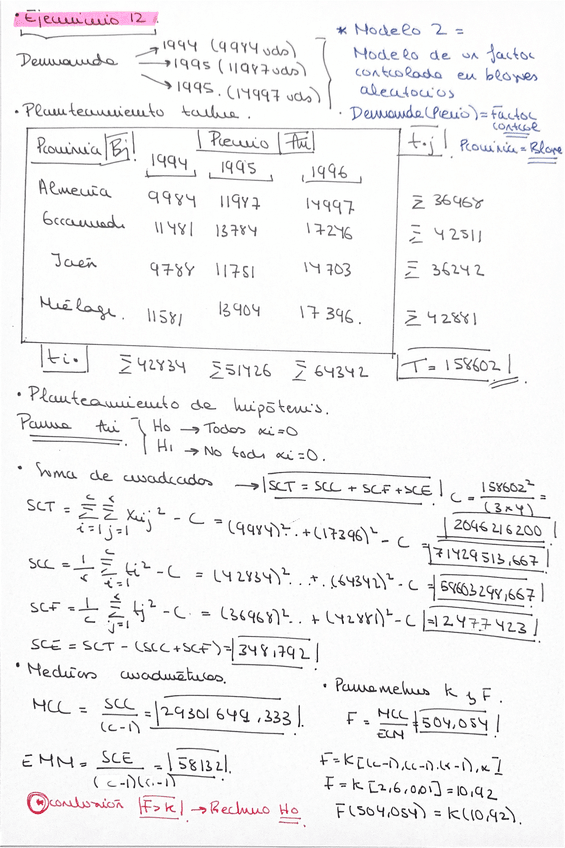 • Ejercicio 12.
Demanda → 1994 (9984 uds)
→ 1995 (11987 uds)
→ 1995. (14997 uds)
* Modelo 2 =
Modelo de un factor
controlado en bloques
aleatorios
• Demanda (Precio) = Factor
control
Provincia = Bloque
• Planteamiento tabla.
Provincia Bj Precio Ai t.j
1994 1995 1996
Almería 9984 11987 14997 Σ 36968
Granada 11481 13784 17246 Σ 42511
Jaén 9788 11751 14703 Σ 36242
Málaga. 11581 13904 17396. Σ 42881
ti. Σ42834 Σ51426 Σ 64342 T = 158602
• Planteamiento de hipótesis.
Para Ai { H0 → Todos αi=0
H1 → No todos αi=0.
• Suma de cuadrados → SCT = SCC + SCF + SCE C = 158602² / (3×4) = 2096216200
SCT = Σ i=1 Σ j=1 Xij² - C = (9984)²... + (17396)² - C = 71429513,667
SCC = 1/r Σ i=1 ti² - C = (42834)²...+. (64342)² - C = 58603298,667
SCF = 1/c Σ j=1 tj² - C. = (36968)².. + (42881)² - C = 12477423
SCE = SCT - (SCC + SCF) = 348,792
• Medias cuadráticas.
MCC = SCC / (c-1) = 29301649,333
EMM = SCE / (c-1)(r-1) = 58132.
• Parametros K y F.
F = MCC / ECM = 504,054
F = K [(c-1), (c-1).(r-1), α]
F = K [2,6,0,01] = 10,92
F (504,054) = K (10,92).
* conclusión F>K → Rechazo H0